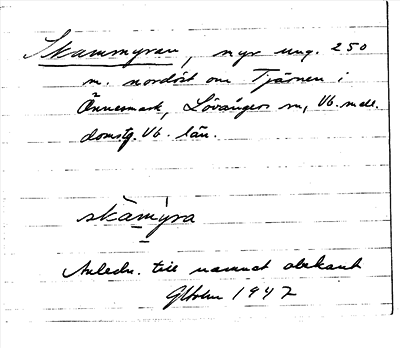 Skammyran, myr ung. 250
m. nordöst om Tjärnen i
Önnesmark, Lövångers sn, Vb. mell.
domstg. Vb. län.
skàmýra
Anledn. till namnet obekant
GHolm 1947